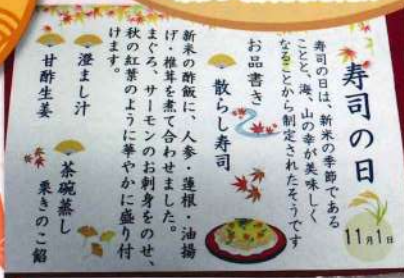 寿司の日
11月1日
寿司の日は、新米の季節である
ことと、海、山の幸が美味しく
なることから制定されたそうです
お品書き
散らし寿司
新米の酢飯に、人参・蓮根・油揚
げ・椎茸を煮て合わせました。
まぐろ、サーモンのお刺身をのせ、
秋の紅葉のように華やかに盛り付
けます。
澄まし汁
茶碗蒸し
栗きのこ餡
甘酢生姜